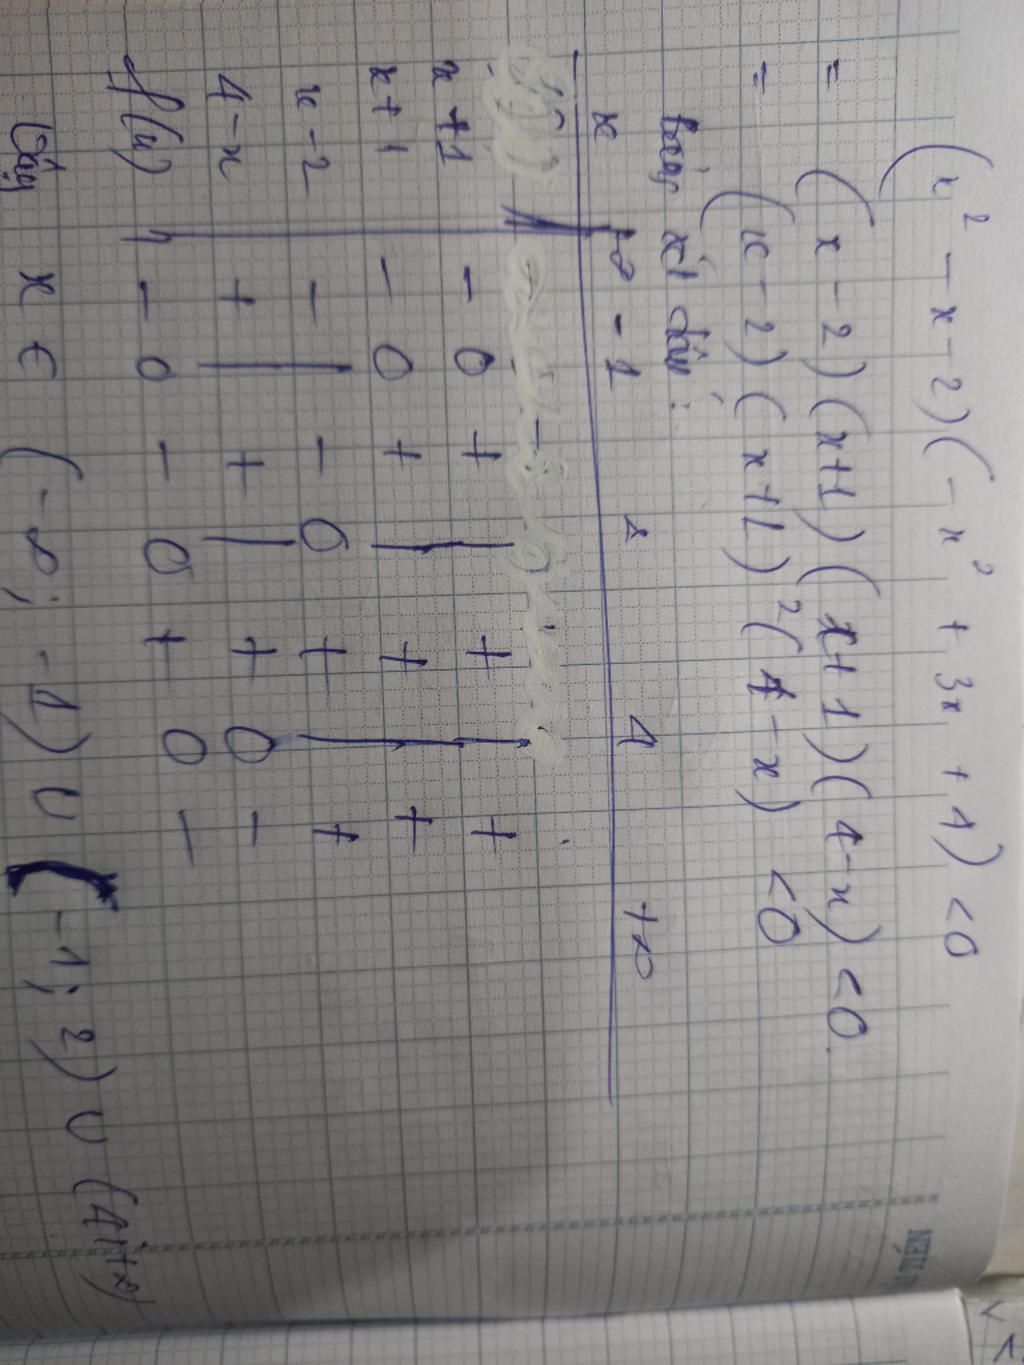 (x² - x - 2)(-x² + 3x + 4) < 0
= (x - 2)(x+1)(x+1)(4-x) < 0.
= (x - 2)(x+1)²(4-x) < 0
bảng xét dấu :
x -∞ -1 2 4 +∞
x+1 - 0 + | + | +
x+1 - 0 + | + | +
x-2 - | - 0 + | +
4-x + | + | + 0 -
f(x) - 0 - 0 + 0 -
Vậy x ∈ (-∞; -1) ∪ (-1; 2) ∪ (4; +∞)